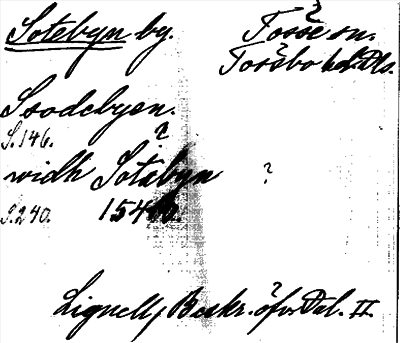 Sotebyn by. Tosse sn.
Tossbo hd. Dls.
Soodebyen.
S. 146. ?
widh Sotabyn ?
S. 240. 1540
Lignell, Beskr. öfv. Dal. II.